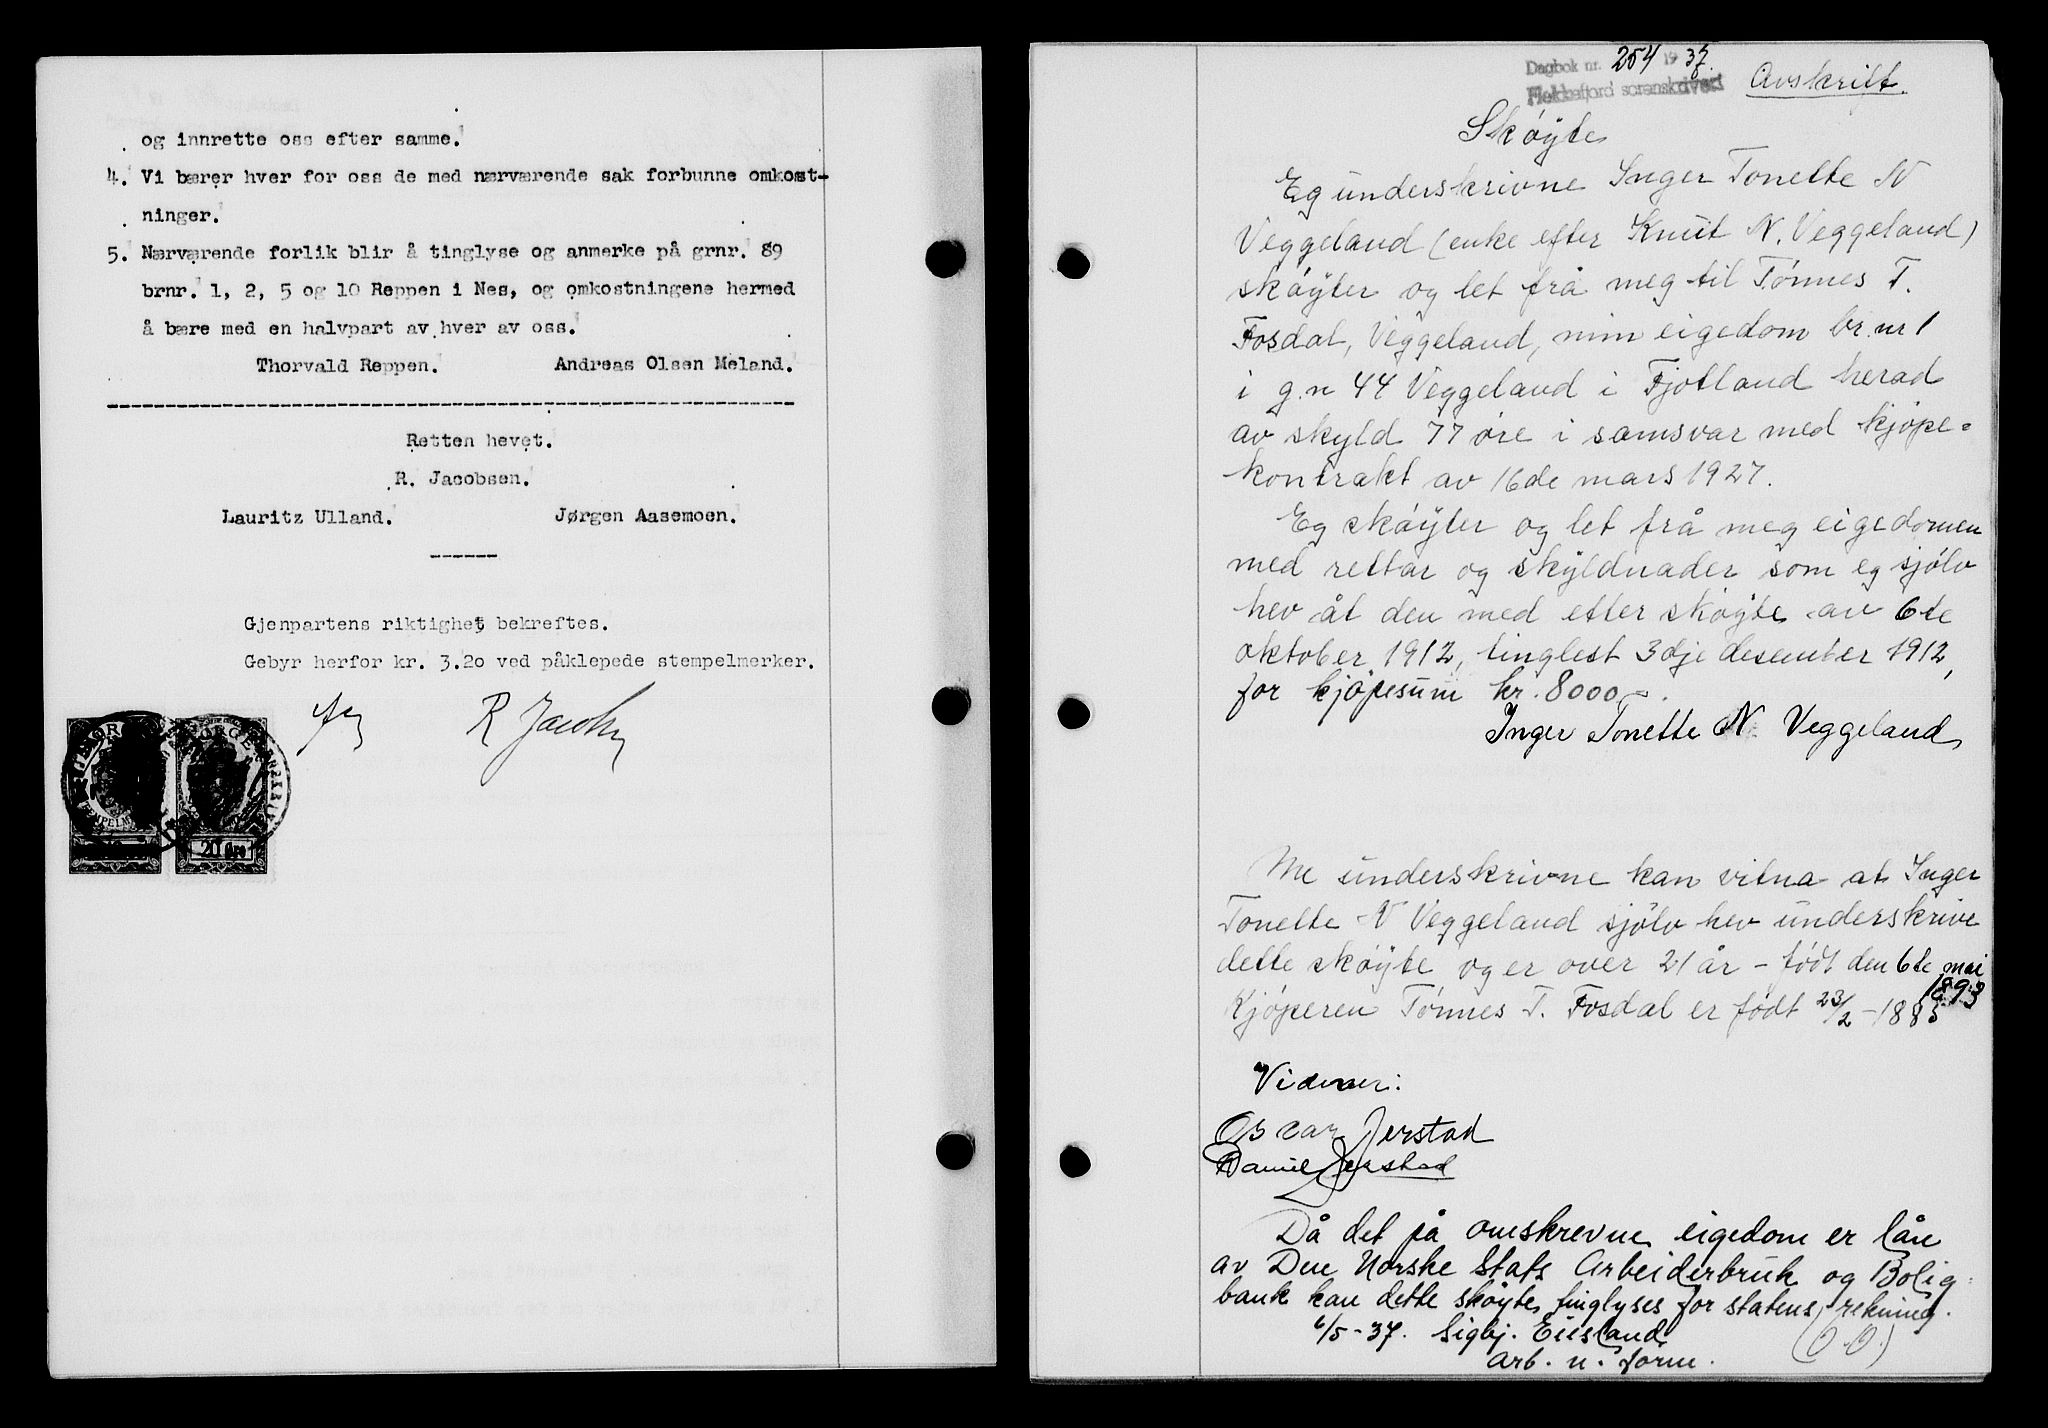 og innrette oss efter samme.
4. Vi bærer hver for oss de med nærværende sak forbunne omkost-
ninger.
5. Nærværende forlik blir å tinglyse og anmerke på grnr. 89
brnr. 1, 2, 5 og 10 Reppen i Nes, og omkostningene hermed
å bære med en halvpart av hver av oss.
Thorvald Reppen. Andreas Olsen Meland.
Retten hevet.
R. Jacobsen.
Lauritz Ulland. Jørgen Aasemoen.
Gjenpartens riktighet bekreftes.
Gebyr herfor kr. 3.20 ved påklepede stempelmerker.
R Jacobsen
NORGE
20 øre
Dagbok nr. 254 1937.
Flekkefjord sorenskriveri
Avskrift.
Skøyte
Eg underskrivne Inger Tonette N
Veggeland (enke efter Knut N. Veggeland)
skøyter og let frå meg til Tønnes T.
Fosdal, Veggeland, min eigedom br.nr 1
i g.n 44 Veggeland i Fjotland herad
av skyld 77 øre i samsvar med kjøpe-
kontrakt av 16de mars 1927.
Eg skøyter og let frå meg eigedomen
med rettar og skyldnader som eg sjølv
hev åt den med etter skøyte av 6te
oktober 1912, tinglest 3dje desember 1912,
for kjøpesum kr. 8000,-.
Inger Tonette N. Veggeland
Me underskrivne kan vitna at Inger
Tonette N Veggeland sjølv hev underskrive
dette skøyte og er over 21 år - født den 6te mai
1893
Kjøperen Tønnes T. Fosdal er født 23/2-1885
Vidner:
Oscar Jerstad
Daniel Jerstad
Då det på omskrevne eigedom er lån
av Den Norske Stats Arbeiderbruk og Bolig-
bank kan dette skøyte tinglyses for statens rekning.
6/5-37. Sigbj. Eiesland
arb. n. form.